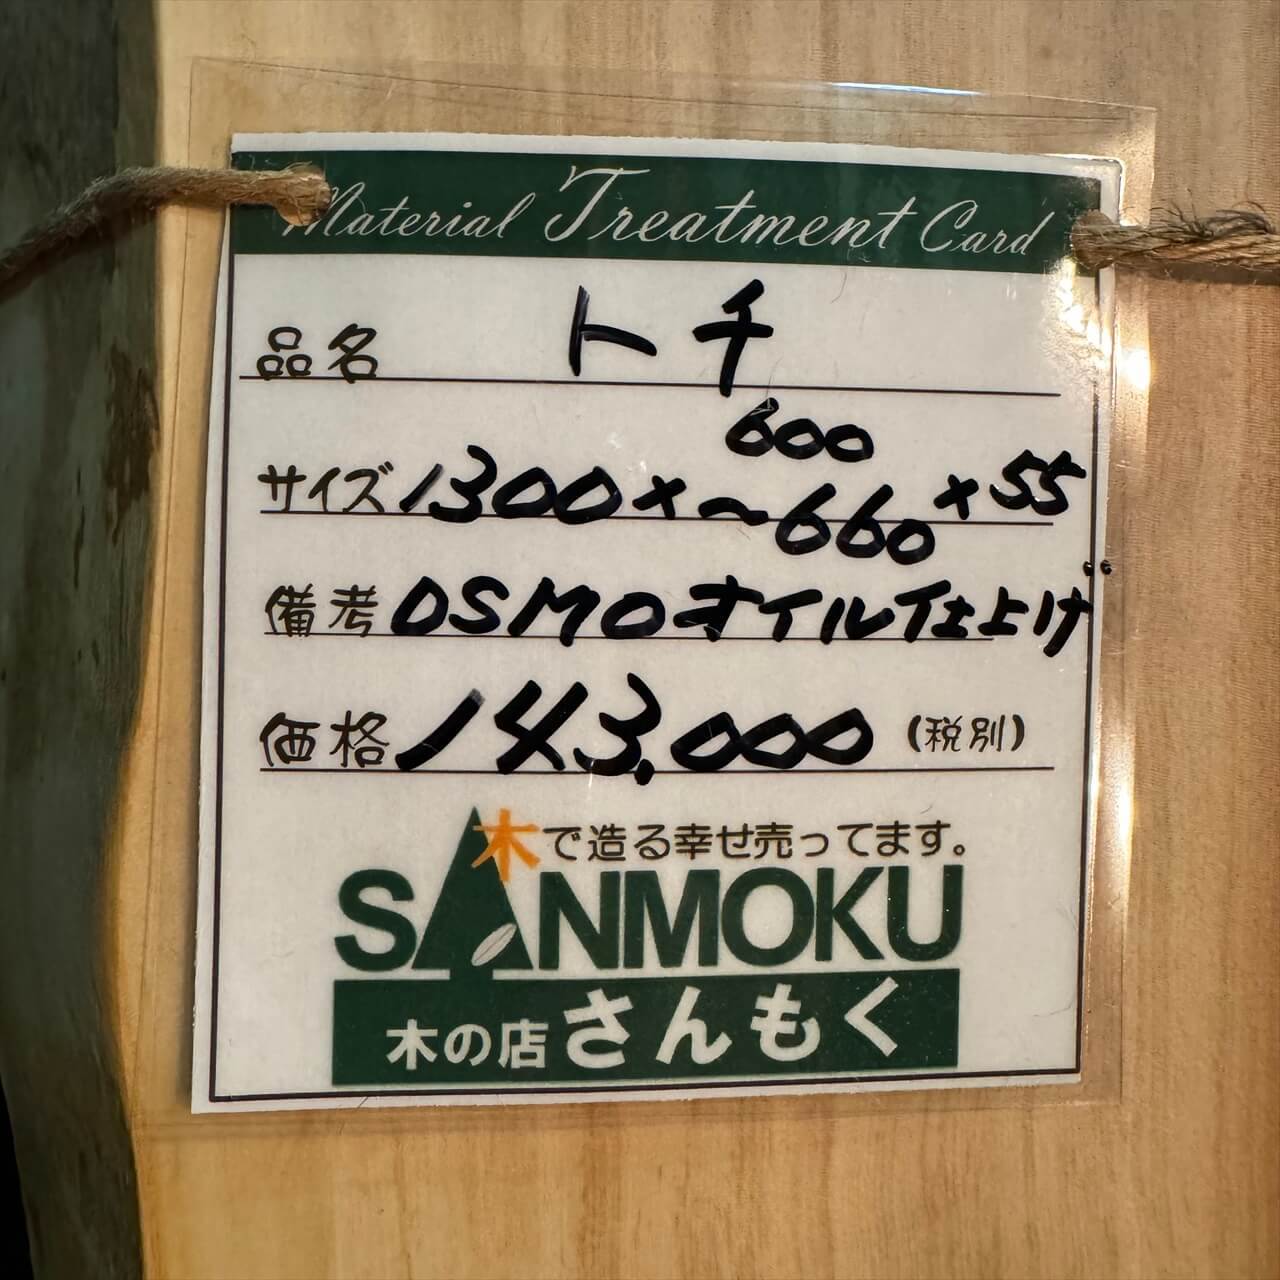 Material Treatment Card
品名 トチ
サイズ 1300×600～660×55
備考 OSMOオイル仕上げ
価格 143,000 (税別)
木で造る幸せ売ってます。
SANMOKU
木の店さんもく